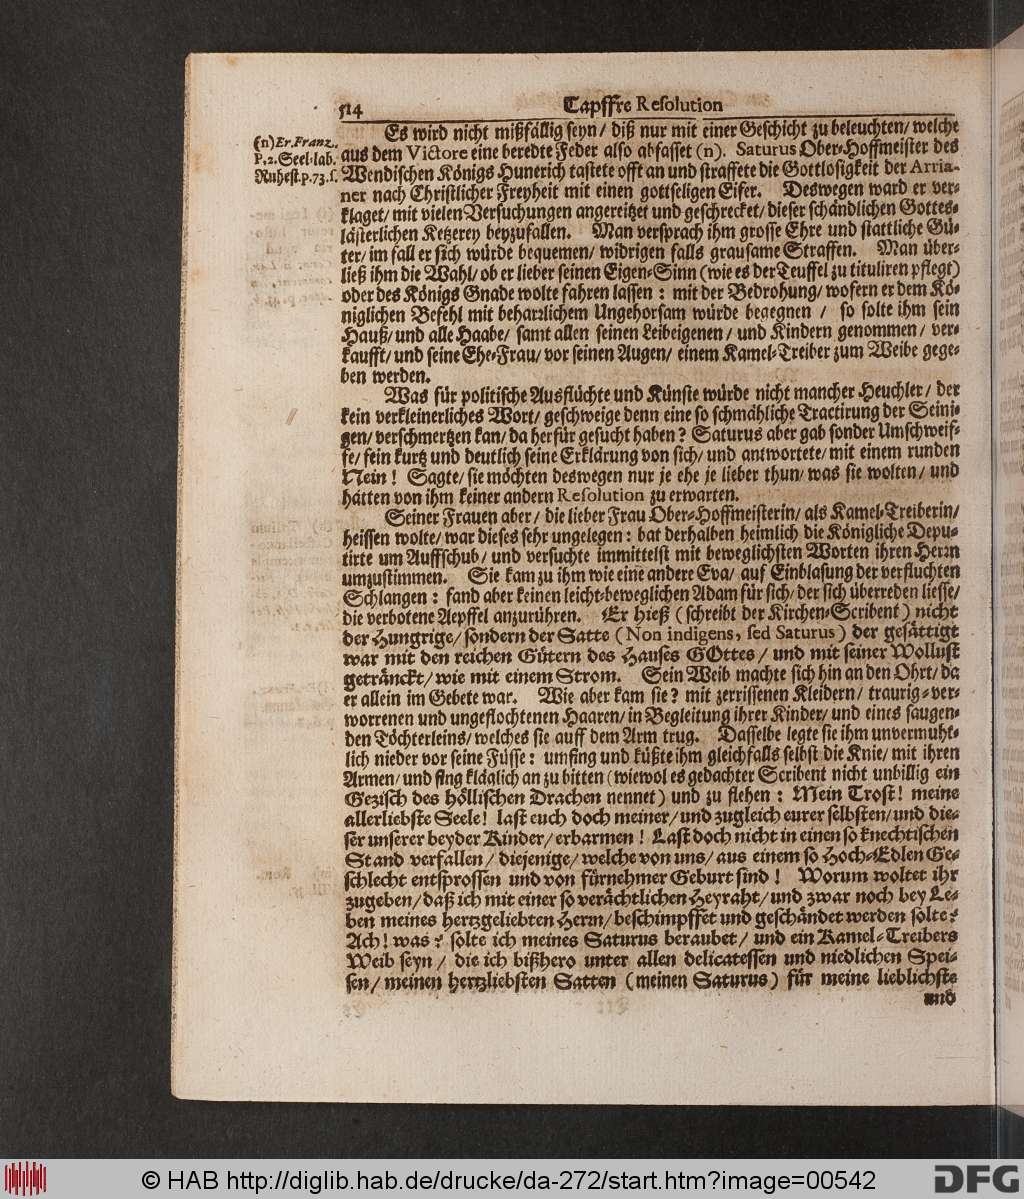 514 Tapffre Resolution
Es wird nicht mißfällig seyn/ diß nur mit einer Geschicht zu beleuchten/ welche
(n) Er. Franz.
P. 2. Seel-lab.
Ruhest. p. 73. s.
aus dem Victore eine beredte Feder also abfasset (n). Saturus Ober-Hoffmeister des
Wendischen Königs Hunerich tastete offt an und straffete die Gottlosigkeit der Arria-
ner nach Christlicher Freyheit mit einen gottseligen Eifer. Deswegen ward er ver-
klaget/ mit vielen Versuchungen angereitzet und geschrecket/ dieser schändlichen Gottes-
lästerlichen Ketzerey beyzufallen. Man versprach ihm grosse Ehre und stattliche Gü-
ter/ im fall er sich würde bequemen/ widrigen falls grausame Straffen. Man über-
ließ ihm die Wahl/ ob er lieber seinen Eigen-Sinn (wie es der Teuffel zu tituliren pflegt)
oder des Königs Gnade wolte fahren lassen: mit der Bedrohung/ wofern er dem Kö-
niglichen Befehl mit beharrlichem Ungehorsam würde begegnen / so solte ihm sein
Hauß/ und alle Haabe/ samt allen seinen Leibeigenen/ und Kindern genommen/ ver-
kaufft/ und seine Ehe-Frau/ vor seinen Augen/ einem Kamel-Treiber zum Weibe gege-
ben werden.
Was für politische Ausflüchte und Künste würde nicht mancher Heuchler/ der
kein verkleinerliches Wort/ geschweige denn eine so schmähliche Tractirung der Seini-
gen/ verschmertzen kan/ da herfür gesucht haben? Saturus aber gab sonder Umschweif-
fe/ fein kurtz und deutlich seine Erklärung von sich/ und antwortete/ mit einem runden
Nein! Sagte/ sie möchten deswegen nur je ehe je lieber thun/ was sie wolten/ und
hätten von ihm keiner andern Resolution zu erwarten.
Seiner Frauen aber/ die lieber Frau Ober-Hoffmeisterin/ als Kamel-Treiberin/
heissen wolte/ war dieses sehr ungelegen: bat derhalben heimlich die Königliche Depu-
tirte um Auffschub/ und versuchte immittelst mit beweglichsten Worten ihren Herrn
umzustimmen. Sie kam zu ihm wie eine andere Eva/ auf Einblasung der verfluchten
Schlangen: fand aber keinen leicht-beweglichen Adam für sich/ der sich überreden liesse/
die verbotene Aepffel anzurühren. Er hieß (schreibt der Kirchen-Scribent) nicht
der Hungrige/ sondern der Satte (Non indigens, sed Saturus) der gesättigt
war mit den reichen Gütern des Hauses GOttes/ und mit seiner Wollust
geträncket/ wie mit einem Strom. Sein Weib machte sich hin an den Ohrt/ da
er allein im Gebete war. Wie aber kam sie? mit zerrissenen Kleidern/ traurig-ver-
worrenen und ungeflochtenen Haaren/ in Begleitung ihrer Kinder/ und eines saugen-
den Töchterleins/ welches sie auff dem Arm trug. Dasselbe legte sie ihm unvermuht-
lich nieder vor seine Füsse: umfing und küßte ihm gleichfalls selbst die Knie/ mit ihren
Armen/ und fing kläglich an zu bitten (wiewol es gedachter Scribent nicht unbillig ein
Gezisch des höllischen Drachen nennet) und zu flehen: Mein Trost! meine
allerliebste Seele! last euch doch meiner/ und zugleich eurer selbsten/ und die-
ser unserer beyder Kinder/ erbarmen! Last doch nicht in einen so knechtischen
Stand verfallen/ diejenige/ welche von uns/ aus einem so Hoch-Edlen Ge-
schlecht entsprossen und von fürnehmer Geburt sind! Worum woltet ihr
zugeben/ daß ich mit einer so verächtlichen Heyraht/ und zwar noch bey Le-
ben meines hertzgeliebten Herrn/ beschimpffet und geschändet werden solte?
Ach! was? solte ich meines Saturus beraubet/ und ein Kamel-Treibers
Weib seyn/ die ich bißhero unter allen delicatessen und niedlichen Spei-
sen/ meinen hertzliebsten Satten (meinen Saturus) für meine lieblichste
und
© HAB http://diglib.hab.de/drucke/da-272/start.htm?image=00542
DFG